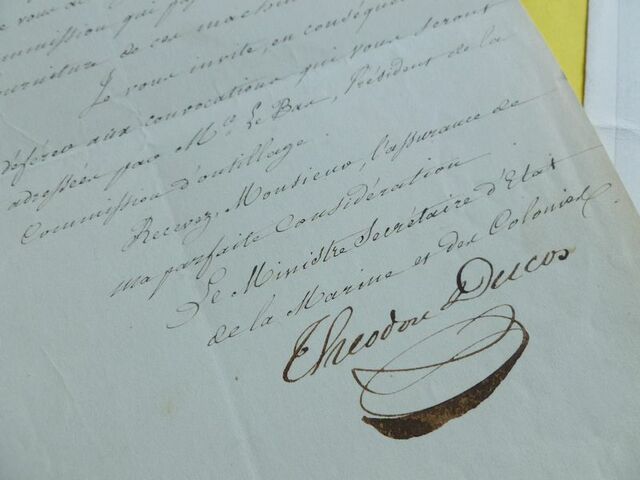 vous
Commission qui
fourniture de ces machin
Je vous invite, en conséque
déférer aux convocations qui vous seront
adressées par Mr. Le Bas, Président de la
Commission d'outillage.
Recevez, Monsieur, l'assurance de
ma parfaite considération
Le Ministre Secrétaire d'Etat
de la Marine et des Colonies.
Theodore Ducos